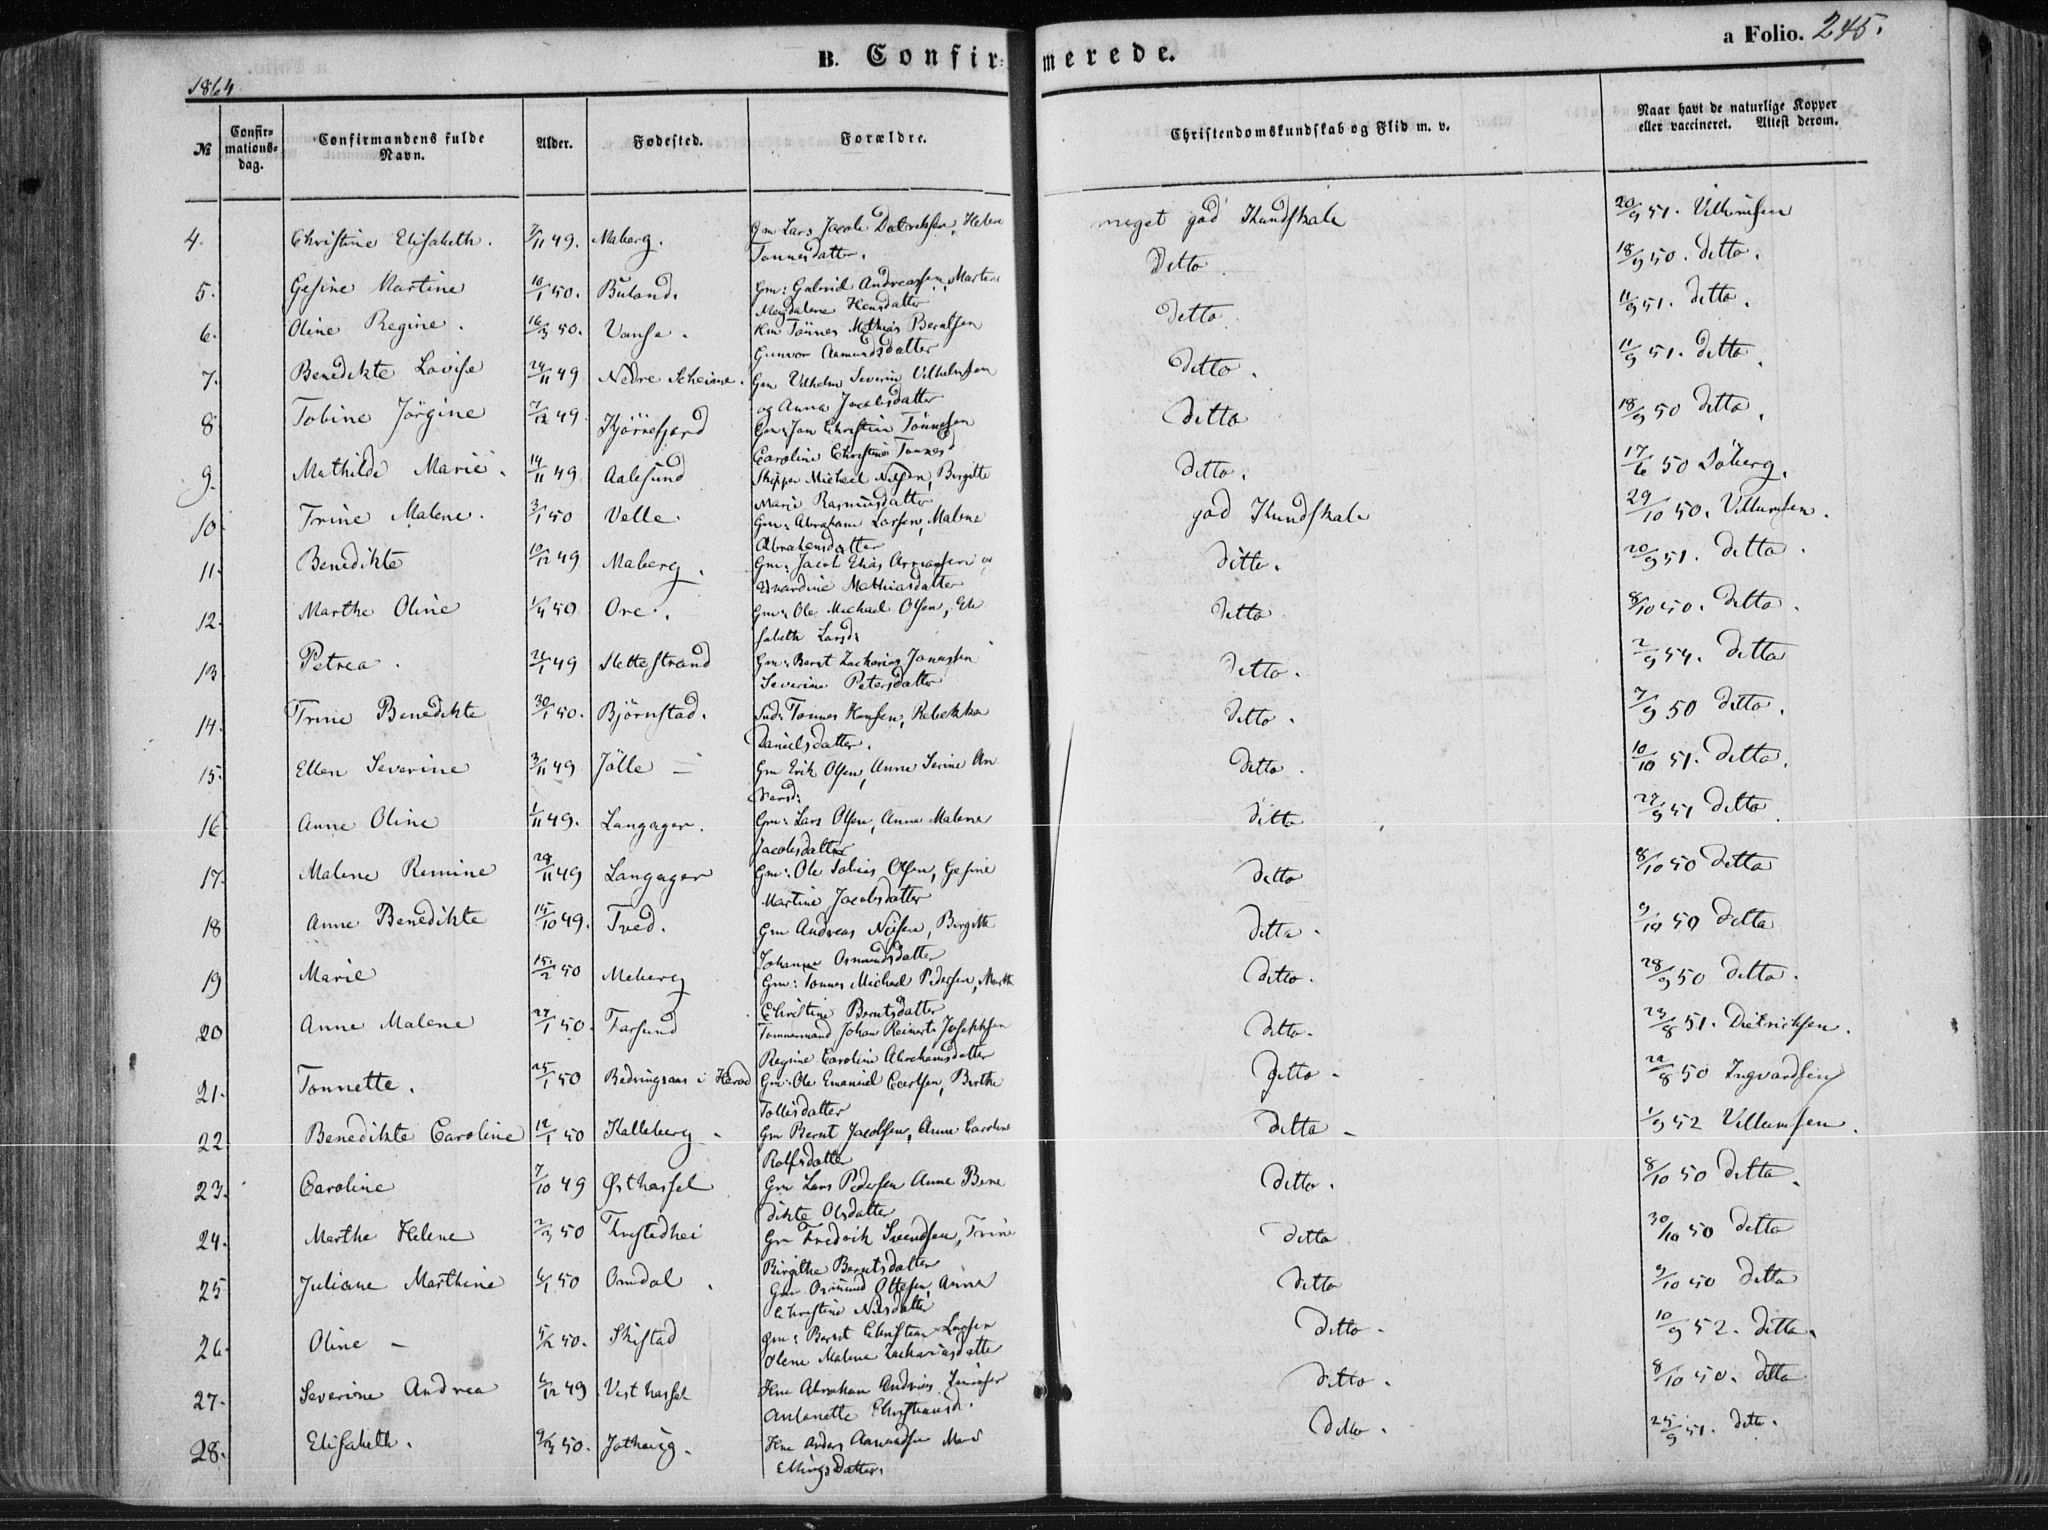 B. Confirmerede.
a Folio. 245.
1864
№ Confirmationsdag. Confirmandens fulde Navn. Alder. Fødested. Forældre. Christendomskundskab og Flid m. v. Naar havt de naturlige Kopper eller vaccineret. Attest derom.
4. Christine Elisabeth. 49. Maberg. Gm Lars Jacob Helene meget god Kundskab 20/9 51. Villumsen
Tønnesdatter.
5. Gesine Martine 10/1 50. Buland. Gm: Gabriel Andreassen, Marten Ditto 18/9 50. ditto.
Magdalene Hansdatter
6. Oline Regine. 16/3 50. Vanse. Hm Tönnes Mathias Berntsen ditto 11/9 51. ditto.
Gunvor Aamundsdatter
7. Benedikte Lovise 24/11 49 Nedre Skeime. Gm Vilhelm Severin Vilhelmsen ditto. 11/9 51. ditto.
og Anna Jacobsdatter
8 Tobine Jörgine 7/12 49. Kjörrefjord Gm: Jan Christian Tönnesen ditto 18/9 50 ditto.
Caroline Christine Tønnesd
9. Mathilde Marie. 14/11 49 Aalesund Skipper Michael Nilsen, Birgitte ditto. 17/6 50 Söberg.
Marie Rasmusdatter
10. Trine Malene. 3/1 50 Velle Gm: Abraham Larsen, Malene god Kundskab 29/10 50. Villumsen.
Abrahamsdatter
11. Benedikte 10/12 49 Maberg. Gm: Jacob Elias og ditto. 20/9 51. ditto.
Edvardine Mathiasdatter
12. Marthe Oline 1/4 50 Ore. Gm: Ole Michael Olsen, Eli ditto 8/10 50. ditto.
sabeth Larsd:
13. Petrea. 21/1 49 Slettestrand Gm: Bernt Zacharias Jonassen ditto. 2/9 54. ditto
Severine Petersdatter
14. Trine Benedikte 30/1 50. Björnstad. Tønnes Hansen, Rebekka ditto. 7/9 50 ditto.
Danielsdatter.
15. Ellen Severine 3/11 49 Jölle Gm Erik Olsen, Anne Serine An ditto. 10/10 51. ditto.
dersd:
16. Anne Oline 1/11 49. Langager. Gm: Lars Olsen, Anne Malene ditto 27/9 51 ditto.
Jacobsdatter
17. Malene Remine 29/11 49 Langager Gm: Ole Tobias Olsen, Gesine ditto 8/10 50 ditto
Martine Jacobsdatter
18 Anne Benedikte 15/10 49. Tved. Gm Andreas Nilsen, Birgitte ditto. 9/10 50 ditto
Johanne Osmundsdatter
19 Marie 15/2 50 Meberg Gm: Tønnes Michael Pedersen, Marth ditto. 28/9 50 ditto.
Christine Berntsdatter
20 Anne Malene 27/1 50. Farsund Tømmermand Johan Reinert Josephsen ditto. 23/8 51. Dietrichsen.
Regine Caroline Abrahamsdatter
21. Tonnette. 25/1 50 i Herad Gm: Ole Emanuel Carlsen, Berthe ditto. 22/8 50 Ingvardsen
Tollisdatter
22. Benedikte Caroline 12/1 50 Kalleberg Gm Bernt Jacobsen, Anne Caroline ditto 1/9 52 Villumsen.
Rolfsdatter
23. Caroline 7/10 49 Østhassel Gm Lars Pedersen Anne Bene ditto. 8/10 50 ditto.
dikte Olsdatter
24. Marthe Helene 2/3 50 Frestadhei Gm Fredrik Svendsen, Trine ditto 30/10 50 ditto
Birgithe Berntsdatter
25 Juliane Marthine 6/1 50 Omdal. Gm Osmund Ottesen, Anne ditto 9/10 50 ditto
Christine Nilsdatter
26. Oline 5/2 50. Skistad Gm: Bernt Christian Larsen ditto. 10/9 52. ditto.
Olene Malene Zachariasdatter
27. Severine Andrea 6/12 49 Vest hassel Hm Abraham Andreas ditto. 8/10 50. ditto
Antonette Christiansd.
28. Elisabeth. 9/3 50. Hm Anders Aanundsen ditto. 25/9 51. ditto.
Ellingsdatter.